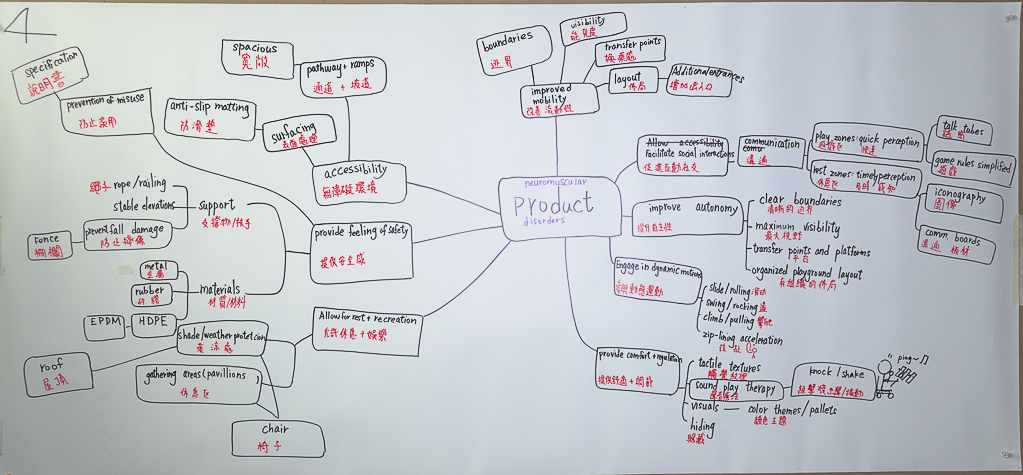 4
specification
說明書
prevention of misuse
防止誤用
spacious
寬敞
pathway + ramps
通道 + 坡道
anti-slip matting
防滑墊
surfacing
表面處理
accessibility
無障礙環境
繩子 rope/railing
stable elevations
support
支撐物/扶手
fence
柵欄
prevent fall damage
防止摔傷
provide feeling of safety
提供安全感
metal
金屬
rubber
橡膠
EPDM
HDPE
materials
材質/材料
Allow for rest + recreation
允許休息 + 娛樂
shade/weather protetcion
乘涼處
roof
屋頂
gathering areas (pavillions)
休息区
chair
椅子
neuromuscular
Product
disorders
boundaries
边界
visibility
能見度
transfer points
layout
佈局
Additional entrances
增加出入口
improved
mobility
改善流動性
Allow accessibility
facilitate social interactions
促進互動社交
communication
溝通
play zones: quick perception
遊戲区 快速
rest zones: timely perception
休息区
talk tubes
game rules simplified
遊戲
iconography
圖像
comm. boards
溝通 板材
improve autonomy
提升自主性
clear boundaries
清晰的边界
maximum visibility
最大視野
transfer points and platforms
平台
organized playground layout
有組織的佈局
Engage in dynamic motions
參與動態運動
slide/rolling 滾动
swing/rocking 盪
climb/pulling 攀爬
zip-lining acceleration
provide comfort + regulation
提供舒適 + 調節
tactile textures
觸覺紋理
sound play therapy
visuals — color themes/pallets
顏色主題
hiding
隱藏
knock / shake
ping~♫